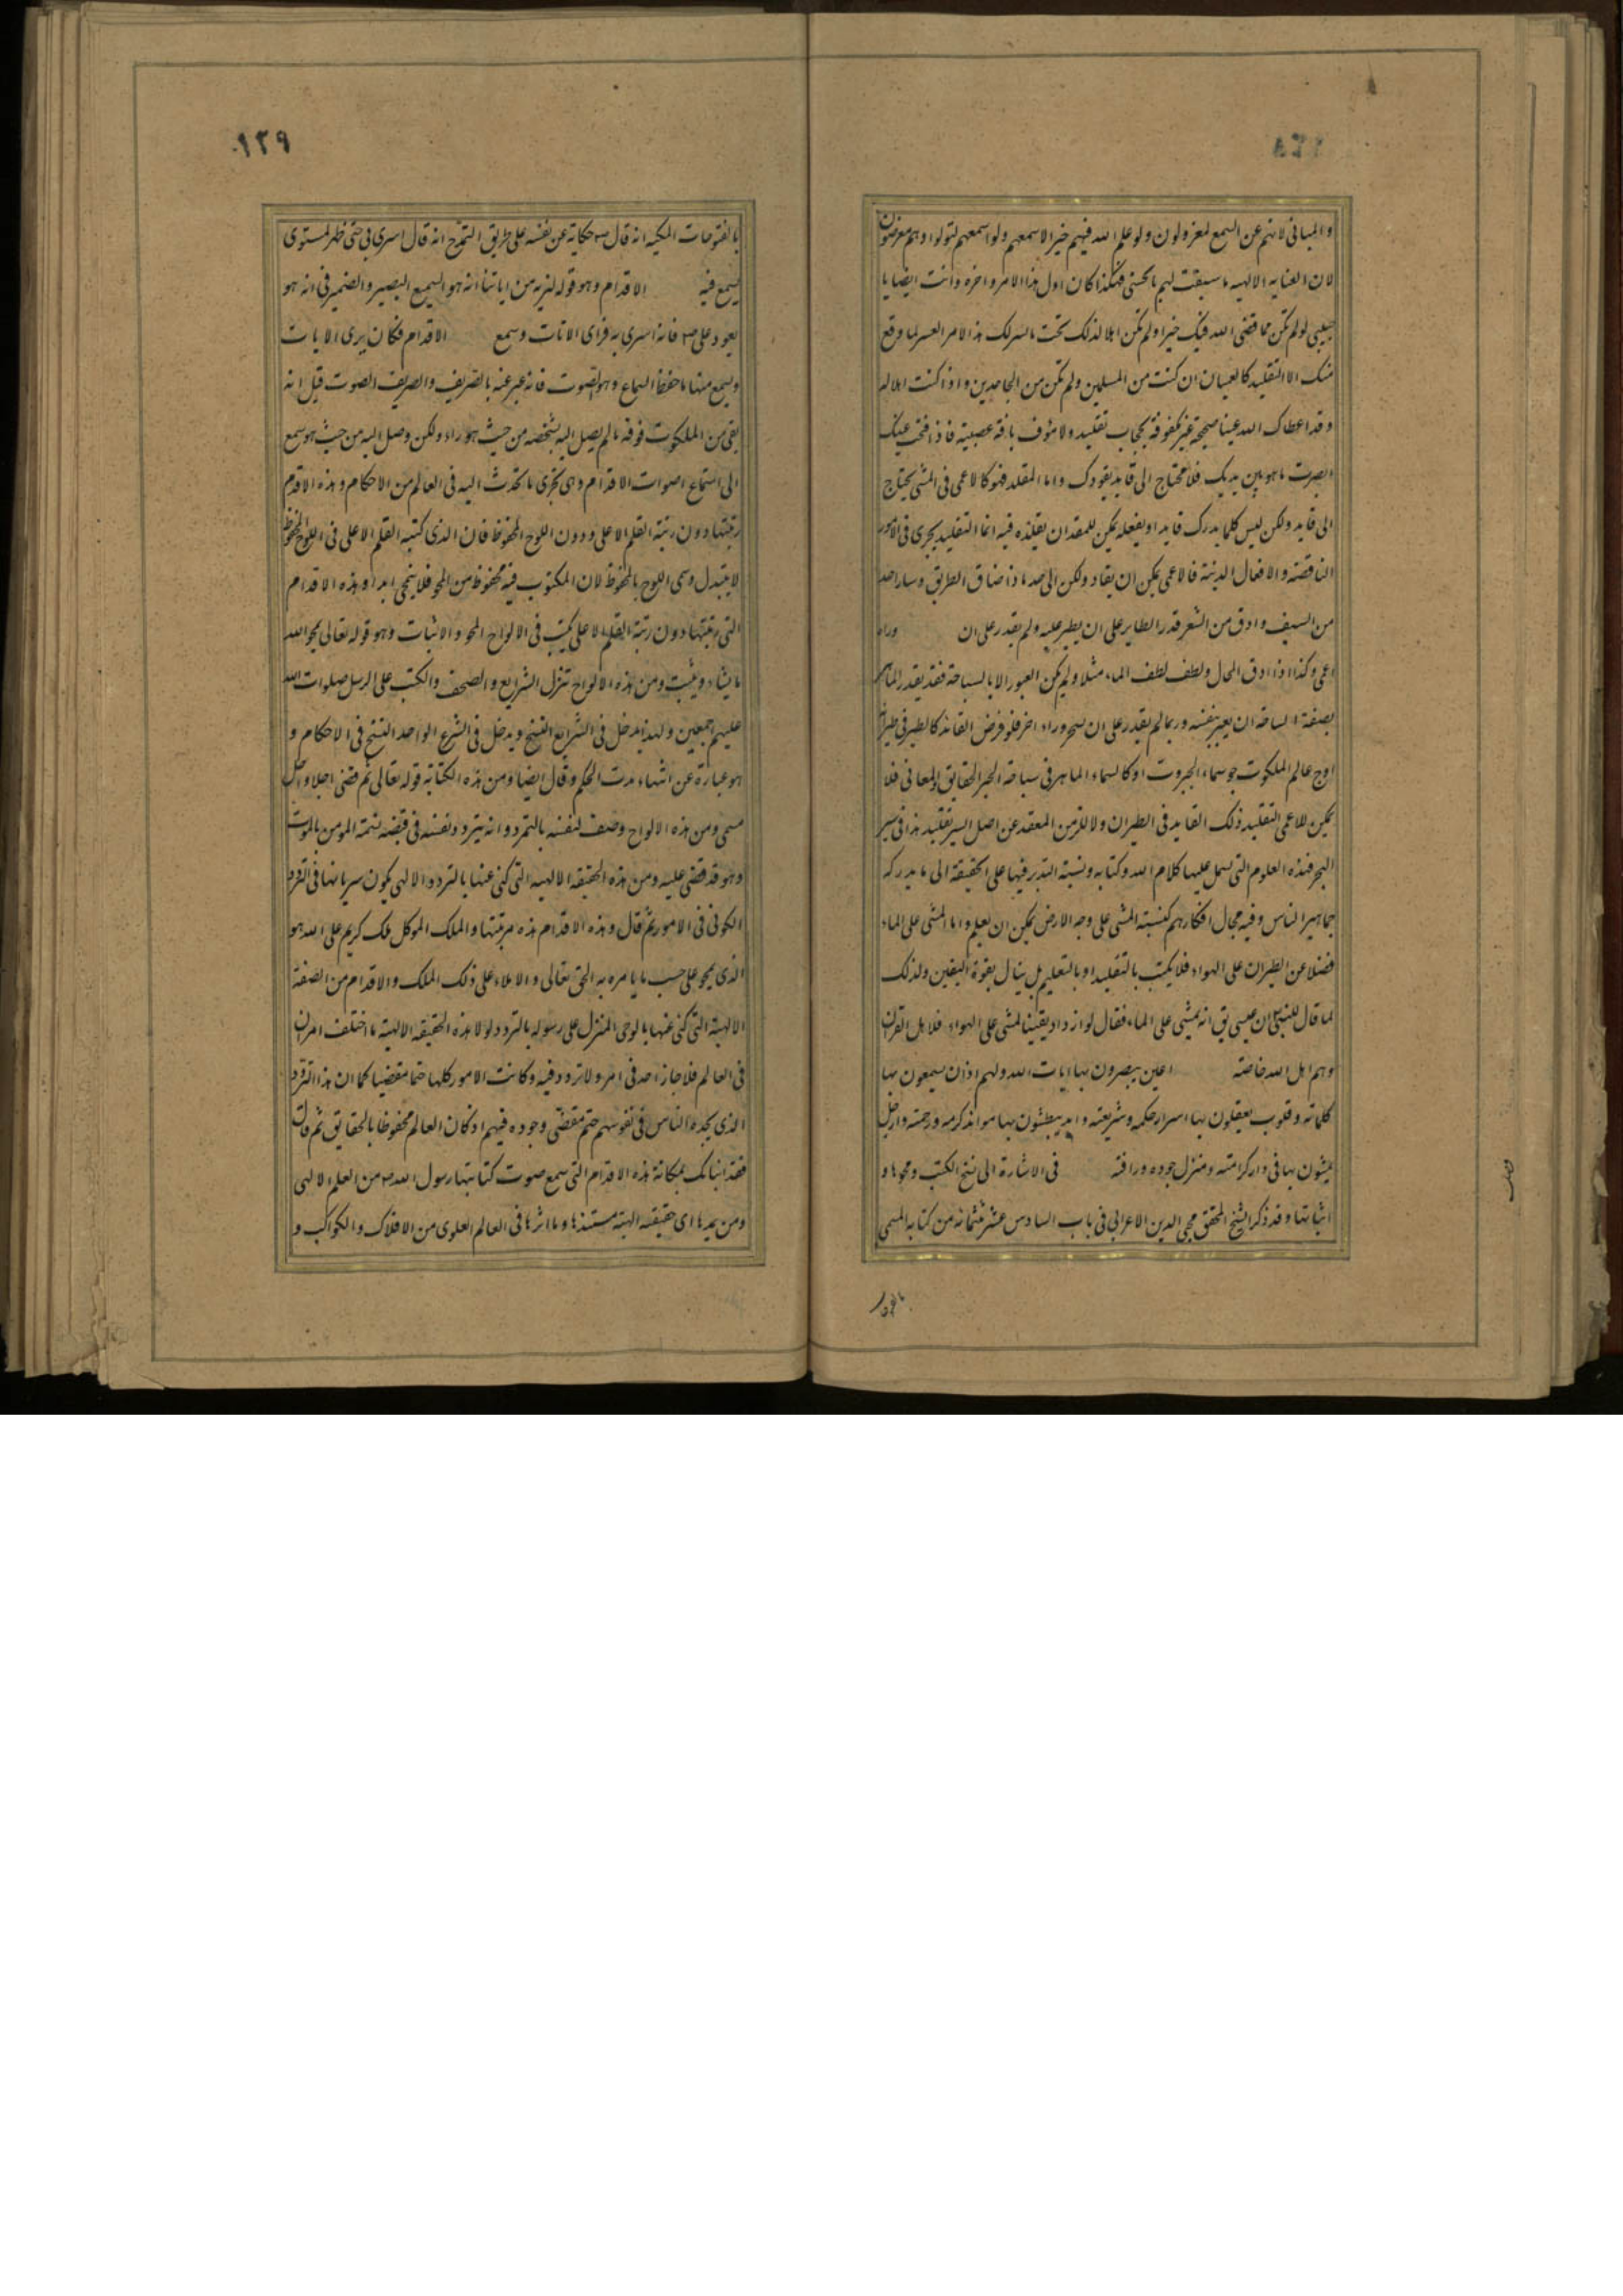 والمبانی لانهم عن السمع لمعزولون ولو علم الله فیهم خیرا لاسمعهم ولو اسمعهم لتولوا وهم معرضون
لان العنایه الالهیه ما سبقت لهم بالحسنی فهکذا کان اول هذا الامر واخره وانت ایضا یا
حبیبی لو لم تکن مما قضی الله فیک خیرا ولم تکن اهلا لذلک هذا الامر العسر لما وقع
منک الا التقلید کالعمیان ان کنت من المسلمین ولم تکن من الجاحدین واذا کنت اهلا له
وقد اعطاک الله عینا صحیحة غیر مکفوفة بحجاب تقلید ولا مئوف بافة عصبیة فاذا فتحت عینک
ابصرت ما هو بین یدیک فلا تحتاج الی قاید یقودک واما المقلد فهو کالاعمی فی المشی یحتاج
الی قاید ولکن لیس کلما یدرک قاید او یفعله یمکن للمقلد ان یقلده فیه انما التقلید یجری فی الامور
الناقصة والافعال الدنیة فالاعمی یمکن ان یقاد ولکن الی حد ما ذا ضاق الطریق وسار احد
من السیف وادق من الشعر قدر الطایر علی ان یطیر علیه ولم یقدر علی ان وراه
اعمی وکذا اذا دق المحال ولطف لطف الماء مثلا ولم یکن العبور الا بالسباحة فقد یقدر الماهر
بصفة السباحة ان یعبر بنفسه وربما لم یقدر علی ان یجر وراه اخر فلو فرض القائد کالطیر فی طیران
اوج عالم الملکوت جو سماء الجبروت او کالسماء الماهر فی سباحة البحر الحقایق والمعانی فلا
یمکن للاعمی التقلید ذلک القاید فی الطیران ولا للزمن المقعد عن اصل السیر تقلید هذا فی سیر
البحر فهذه العلوم التی یشمل علیها کلام الله وکتابه ونسبة التدبر فیها علی الحقیقة الی ما یدرکه
جماهیر الناس وفیه مجال افکارهم کنسبة المشی علی وجه الارض یمکن ان یعلم واما المشی علی الماء
فضلا عن الطیران علی الهواء فلا یکتسب بالتقلید او بالتعلیم بل ینال بقوة الیقین ولذلک
لما قال للنبی ان عیسی یق انه یمشی علی الماء فقال لو ازداد یقینا لمشی علی الهواء فلاهل القران
وهم اهل الله خاصة اعین یبصرون بها ایات الله ولهم اذان یسمعون بها
کلماته وقلوب یعقلون بها اسرار حکمه وشریعته واید یبطشون بها موائد کرمه ورحمته وارجل
یمشون بها فی دار کرامته ومنزل جوده ورافته فی الاشارة الی نسخ الکتب ومحوها و
اثباتها وقد ذکر الشیخ المحقق محی الدین الاعرابی فی باب السادس عشر وثلثمائة من کتابه المسمی
بالفتوحات
۱۲۹
بالفتوحات المکیه انه قال ص حکایة عن نفسه علی طریق التمدح انه قال اسری بی حتی ظهر لمستوی
یسمع فیه الاقدام وهو قوله لنریه من ایاتنا انه هو السمیع البصیر والضمیر فی انه هو
یعود علی ص فانه اسری به فرای الایات وسمع الاقدام فکان یری الایات
ویسمع منها ما حفظ السماع وهو الصوت فانه عبر عنه بالصریف والصریف الصوت قیل انه
بقی من الملکوت فوقه ما لم یصل الیه بشخصه من حیث هو راء ولکن وصل الیه من حیث هو سمیع
الی استماع اصوات الاقدام وهی تجری ما تحدث الیه فی العالم من الاحکام وهذه الاقدام
رتبتها دون رتبة القلم الاعلی ودون اللوح المحفوظ فان الذی کتبه القلم الاعلی فی اللوح المحفوظ
لا یتبدل وسمی اللوح بالمحفوظ لان المکتوب فیه محفوظ من المحو فلا ینمحی ابدا وهذه الاقدام
التی رتبتها دون رتبة القلم الاعلی یکتب فی الالواح المحو والاثبات وهو قوله تعالی یمحو الله
ما یشاء ویثبت ومن هذه الالواح تنزل الشرایع والصحف والکتب علی الرسل صلوات الله
علیهم اجمعین ولهذا یدخل فی الشرایع النسخ ویدخل فی الشرع الواحد النسخ فی الاحکام و
هو عبارة عن انتهاء مدت الحکم وقال ایضا ومن هذه الکتابة قوله تعالی ثم قضی اجلا واجل
مسمی ومن هذه الالواح وصف نفسه بالتردد وانه یتردد نفسه فی قبضه نسمة المومن بالموت
وهو قد قضی علیه ومن هذه الحقیقه الالهیه التی کنی عنها بالتردد الالهی یکون سریانها فی التردد
الکونی فی الامور ثم قال وهذه الاقدام هذه مرتبتها والملک الموکل ملک کریم علی الله هو
الذی یمحو علی حسب ما یامره به الحق تعالی والاملاء علی ذلک الملک والاقدام من الصفة
الالهیة التی کنی عنها بالوحی المنزل علی رسوله بالتردد ولولا هذه الحقیقه الالهیة ما اختلف امران
فی العالم فلا جاز احد فی امر ولا تردد فیه وکانت الامور کلها حتما مقضیا کما ان هذا التردد
الذی یجده الناس فی نفوسهم حتم مقضی وجوده فیهم اذ کان العالم محفوظا بالحقایق ثم قال
فقد انباتک بمکانة هذه الاقدام التی سمع صوت کتابتها رسول الله ص من العلم الالهی
ومن یمدها ای حقیقه الهیة مستندها وما اثرها فی العالم العلوی من الافلاک والکواکب و